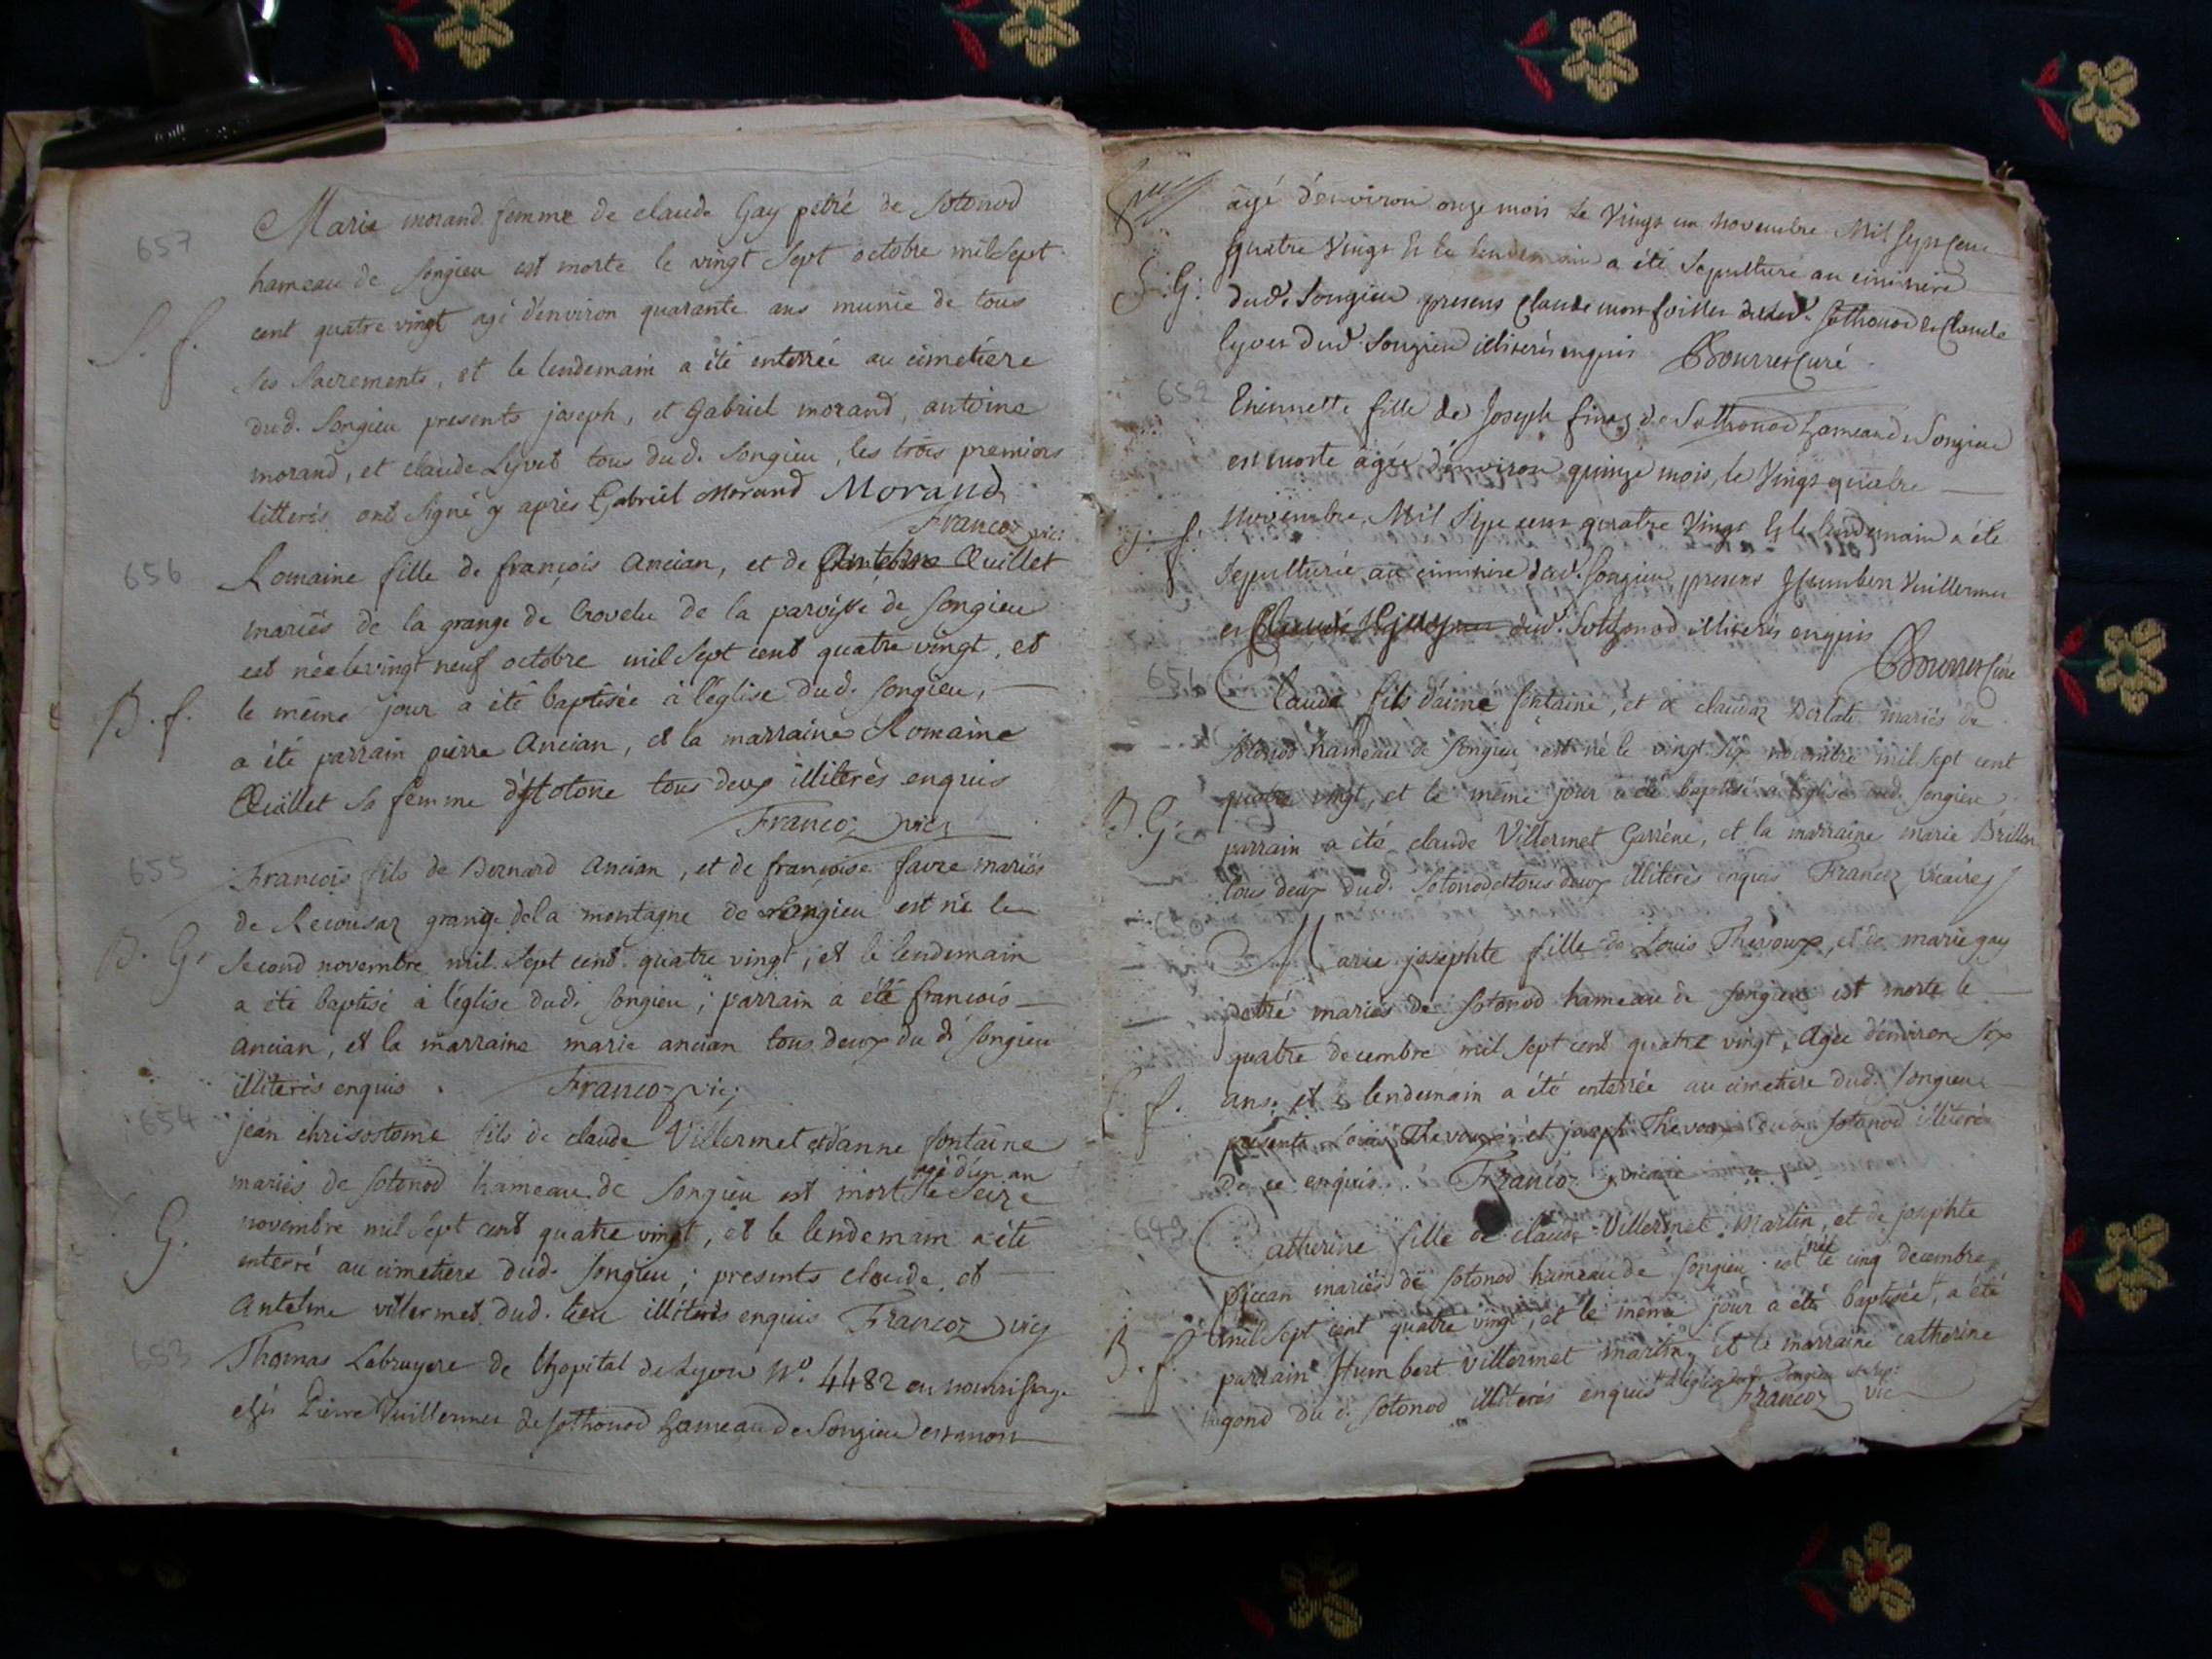 657
Marie morand femme de claude Gay petré de Sotonod
hameau de Songieu est morte le vingt Sept octobre mil Sept
cent quatre vingt agé d'environ quarante ans munie de tous
S. f.
ses Sacrements, et le lendemain a été enterrée au cimetiere
dud. Songieu presents joseph, et Gabriel morand, antoine
morand, et claude Lyvet tous dud. Songieu, les trois premiers
litterés ont signé y après Gabriel Morand Morand
Francoz vic:
656
Romaine fille de françois Ancian, et de Œuillet
mariés de la grange de Crovelu de la paroisse de Songieu
est née le vingt neuf octobre mil Sept cent quatre vingt, et
B. f.
le même jour a été baptisée à l'église dud. Songieu,
a été parrain pierre Ancian, et la marraine Romaine
Œuillet sa femme tous deux illiterés enquis
Francoz vic
655
François fils de Bernard Ancian, et de françoise favre mariés
de Recousaz grange de la montagne de Songieu est né le
B. G.
Second novembre mil Sept cent quatre vingt, et le lendemain
a été baptisé à l'église dud. Songieu; parrain a été françois
Ancian, et la marraine marie ancian tous deux du d. Songieu
illiterés enquis. Francoz vic;
654
jean chrisostome fils de claude Villermet et d'anne fontaine
mariés de Sotonod hameau de Songieu est mort agé d'un an le Seize
G.
novembre mil Sept cent quatre vingt, et le lendemain a été
enterré au cimetiere dud. Songieu; presents claude et
Antelme villermet dud. lieu illiterés enquis Francoz vic
653
Thomas Labruyere de l'hopital de Lyon N.º 4482 en nourissage
chés Pierre Vuillermet de Sothonod hameau de Songieu est mort
agé d'environ onze mois le Vingt un novembre Mil Sept Cent
quatre Vingt Et le lendemain a été Sepulturé au cimitiere
S. G.
dud. Songieu presens Claude dud. Sothonod et Claude
lyvet dud. Songieu illiterés enquis Bourret Curé
652
Etiennette fille de Joseph finaz de Sothonod hameau de Songieu
est morte agée d'environ quinze mois, le Vingt quatre
S. f.
Novembre, Mil Sept cent quatre Vingt Et le lendemain a été
Sepulturée au cimitiere dud. Songieu, presens Humbert Vuillermet
et Claude dud. Sothonod illiterés enquis
Bourret Curé
651
Claude fils d'aimé fontaine, et de claudaz mariés de
Sotonod hameau de Songieu est né le vingt Six novembre mil Sept cent
quatre vingt, et le même jour a été baptisé à l'église dud. Songieu
B. G.
parrain a été claude Villermet Garréne, et la marraine marie Brillon
tous deux dud. Sotonod et tous deux illiterés enquis Francoz vicaire
Marie josephte fille de Louis Thevoux, et de marie gay
petré mariés de Sotonod hameau de Songieu est morte le
quatre decembre mil Sept cent quatre vingt, Agée d'environ Six
f.
ans, et le lendemain a été enterrée au cimetiere dud. Songieu
presents Louis Thevoux, et joseph Thevoux dud. Sotonod illiterés
de ce enquis. Francoz vicaire
649
Catherine fille de claude Villermet Martin, et de josephte
piccan mariés de Sotonod hameau de Songieu est née le cinq decembre
mil Sept cent quatre vingt, et le même jour a été baptisée, a été
B. f.
parrain Humbert Villermet martin, et la marraine catherine
hugond du d. Sotonod illiterés enquis
Francoz vic